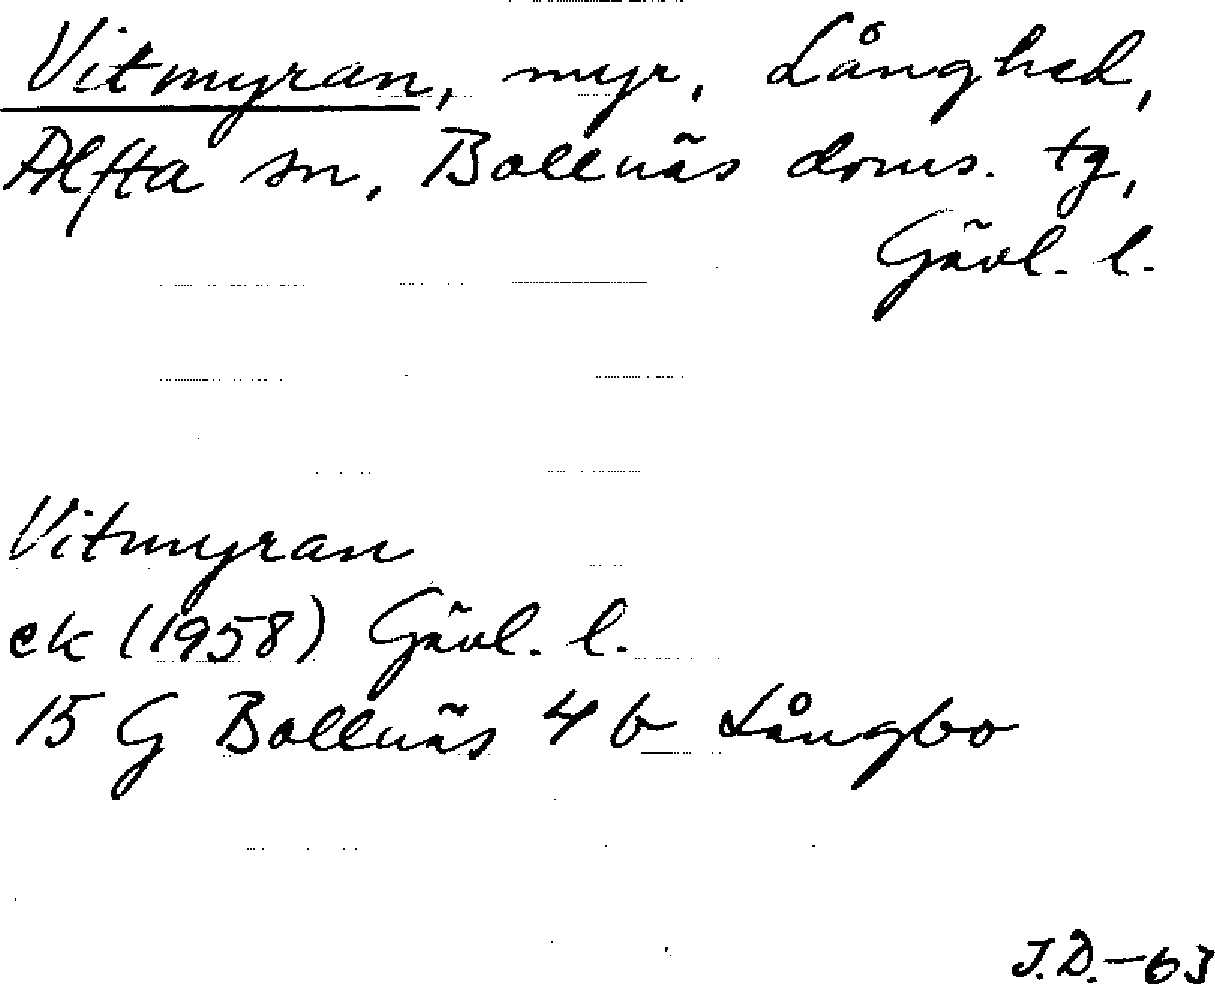 Vitmyran, myr, Långhed,
Alfta sn, Bollnäs doms. tg,
Gävl. l.
Vitmyran
ek (1958) Gävl. l.
15 G Bollnäs 4 b Långbo
J.D.-63